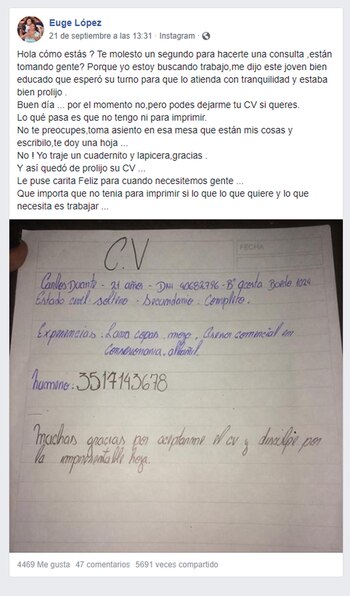 Euge López
21 de septiembre a las 13:31 · Instagram ·
Hola cómo estás ? Te molesto un segundo para hacerte una consulta ,están
tomando gente? Porque yo estoy buscando trabajo,me dijo este joven bien
educado que esperó su turno para que lo atienda con tranquilidad y estaba
bien prolijo .
Buen día ... por el momento no,pero podes dejarme tu CV si queres.
Lo qué pasa es que no tengo ni para imprimir.
No te preocupes,toma asiento en esa mesa que están mis cosas y
escribilo,te doy una hoja ...
No ! Yo traje un cuadernito y lapicera,gracias .
Y así quedó de prolijo su CV ...
Le puse carita Feliz para cuando necesitemos gente ...
Que importa que no tenia para imprimir si lo que lo que quiere y lo que
necesita es trabajar ...
FECHA
C.V
Carlos Duarte - 21 años - DNI 40682796 - B° acosta Baeto 1024
Estado civil soltero - Secundario: Completo.
Experiencias: Lava copas, mozo, Asesor comercial en
Concesionaria, albañil.
Numero: 3517143678
Muchas gracias por aceptarme el cv y disculpe por
la impresentable hoja.
4469 Me gusta 47 comentarios 5691 veces compartido